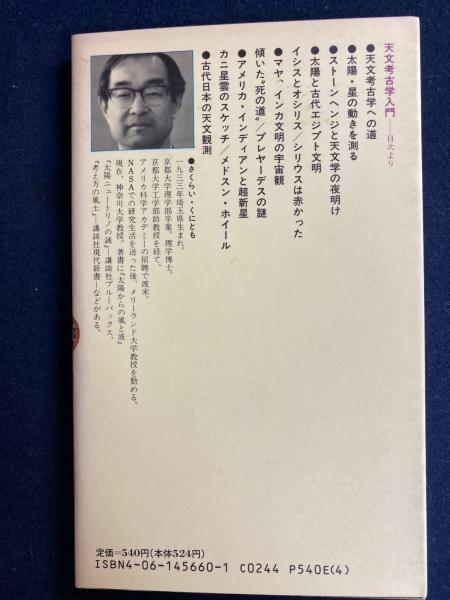 天文考古学入門——目次より
●天文考古学への道
●太陽・星の動きを測る
●ストーンヘンジと天文学の夜明け
●太陽と古代エジプト文明
イシスとオシリス/シリウスは赤かった
●マヤ、インカ文明の宇宙観
傾いた"死の道"/プレヤーデスの謎
●アメリカ・インディアンと超新星
カニ星雲のスケッチ/メドスン・ホイール
●古代日本の天文観測
●さくらい・くにとも
一九三三年埼玉県生まれ。
京都大学理学部卒業。理学博士。
京都大学工学部助教授を経て、
アメリカ科学アカデミーの招聘で渡米。
NASAでの研究生活を送った後、メリーランド大学教授を勤める。
現在、神奈川大学教授。著書に『太陽からの風と波』
『太陽ニュートリノの謎』—講談社ブルーバックス、
『考え方の風土』—講談社現代新書—などがある。
定価=540円(本体524円)
ISBN4-06-145660-1 C0244 P540E(4)